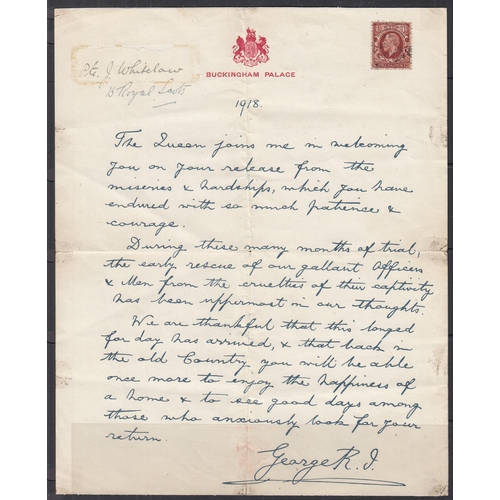 Pte. J. Whitelaw
Royal Scots
BUCKINGHAM PALACE
1918.
The Queen joins me in welcoming
you on your release from the
miseries & hardships, which you have
endured with so much patience &
courage.
During these many months of trial,
the early rescue of our gallant Officers
& Men from the cruelties of their captivity
has been uppermost in our thoughts.
We are thankful that this longed
for day has arrived, & that back in
the old Country you will be able
once more to enjoy the happiness of
a home & to see good days among
those who anxiously look for your
return.
George R.I.